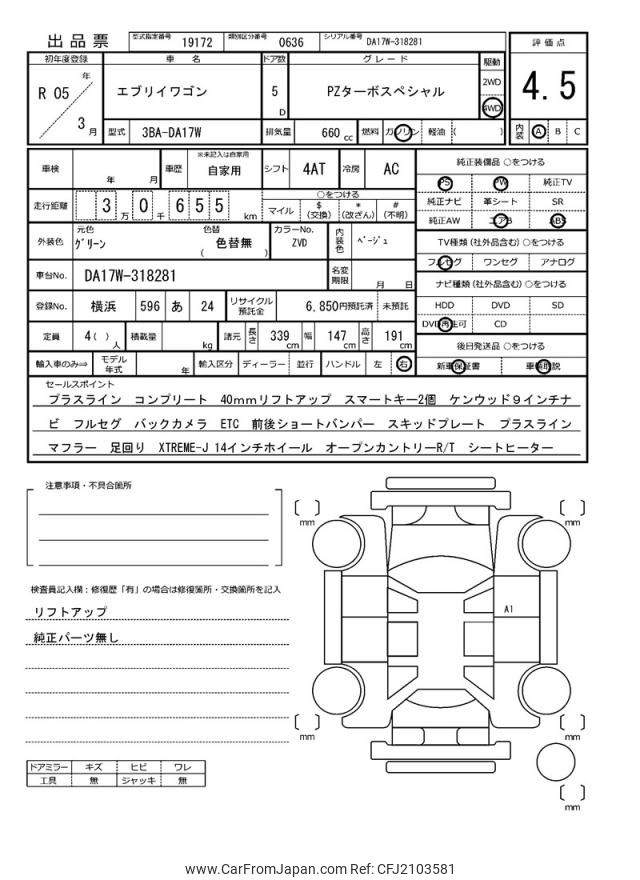 出品票 型式指定番号 19172 類別区分番号 0636 シリアル番号 DA17W-318281
評価点
4.5
内装 A B C
初年度登録 車名 ドア数 グレード 駆動
R 05 年 3 月 エブリイワゴン 5 D PZターボスペシャル 2WD 4WD
型式 3BA-DA17W 排気量 660 cc 燃料 ガソリン 軽油 ( )
車検 年 月 車歴 ※未記入は自家用 自家用 シフト 4AT 冷房 AC
走行距離 3 万 0 千 6 5 5 km ○をつける
マイル $(交換) *(改ざん) #(不明)
外装色 元色 グリーン 色替 色替無 ( ) カラーNo. ZVD 内装色 ベージュ
車台No. DA17W-318281 名変期限 月 日
登録No. 横浜 596 あ 24 リサイクル預託金 6,850円預託済 未預託
定員 4 ( ) 人 積載量 kg 諸元 長さ 339 cm 幅 147 cm 高さ 191 cm
輸入車のみ⇒ モデル年式 年 輸入区分 ディーラー 並行 ハンドル 左 右
純正装備品 ○をつける
PS PW 純正TV
純正ナビ 革シート SR
純正AW エアB ABS
TV種類(社外品含む)○をつける
フルセグ ワンセグ アナログ
ナビ種類(社外品含む)○をつける
HDD DVD SD
DVD再生可 CD
後日発送品 ○をつける
新車保証書 車輌取説
セールスポイント
プラスライン コンプリート 40mmリフトアップ スマートキー2個 ケンウッド9インチナ
ビ フルセグ バックカメラ ETC 前後ショートバンパー スキッドプレート プラスライン
マフラー 足回り XTREME-J 14インチホイール オープンカントリーR/T シートヒーター
注意事項・不具合箇所
検査員記入欄：修復歴「有」の場合は修復箇所・交換箇所を記入
リフトアップ
純正パーツ無し
ドアミラー キズ ヒビ ワレ
工具 無 ジャッキ 無
mm
mm
A1
mm
mm
mm
www.CarFromJapan.com Ref: CFJ2103581